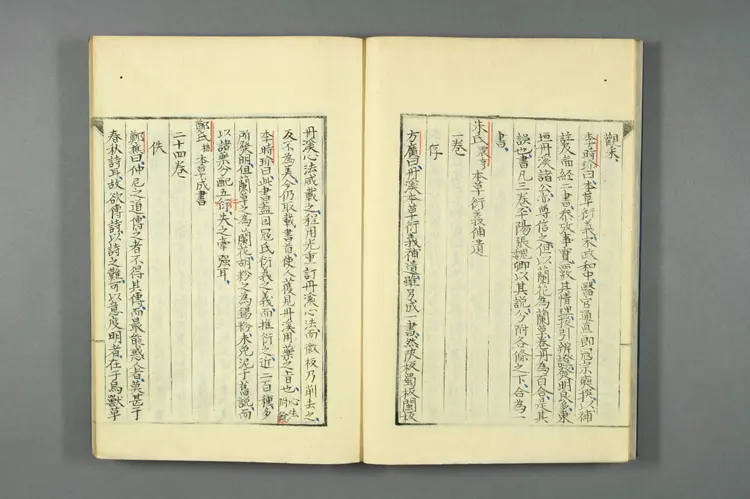 觀美
李時珍曰本草衍義宋政和中醫官通直郎寇宗奭撰以補
註及圖經二書參攷事實覈其情理援引辨證發明良多東
垣丹溪諸公亦尊信之但以蘭花為蘭草卷丹為百合是其
誤也書凡三卷平陽張魏卿以其說分附各條之下合為一
書
朱氏震亨本草衍義補遺
一卷
存
方廣曰丹溪本草衍義補遺雖另成一書然陝板蜀板閩板
丹溪心法咸載之程用光重訂丹溪心法而徽板乃削去之
反不為美今仍取載書首使人獲見丹溪用藥之旨也心法附餘
李時珍曰此書蓋因寇氏衍義之義而推衍之近二百種多
所發明但蘭草之為蘭花胡粉之為錫粉未免泥于舊說而
以諸藥分配五行失之牽強耳
鄭氏樵本草成書
二十四卷
佚
鄭樵曰仲尼之道傳之者不得其傳而最能惑人者莫甚于
春秋詩耳故欲傳詩以詩之難可以意度明者在于鳥獸草